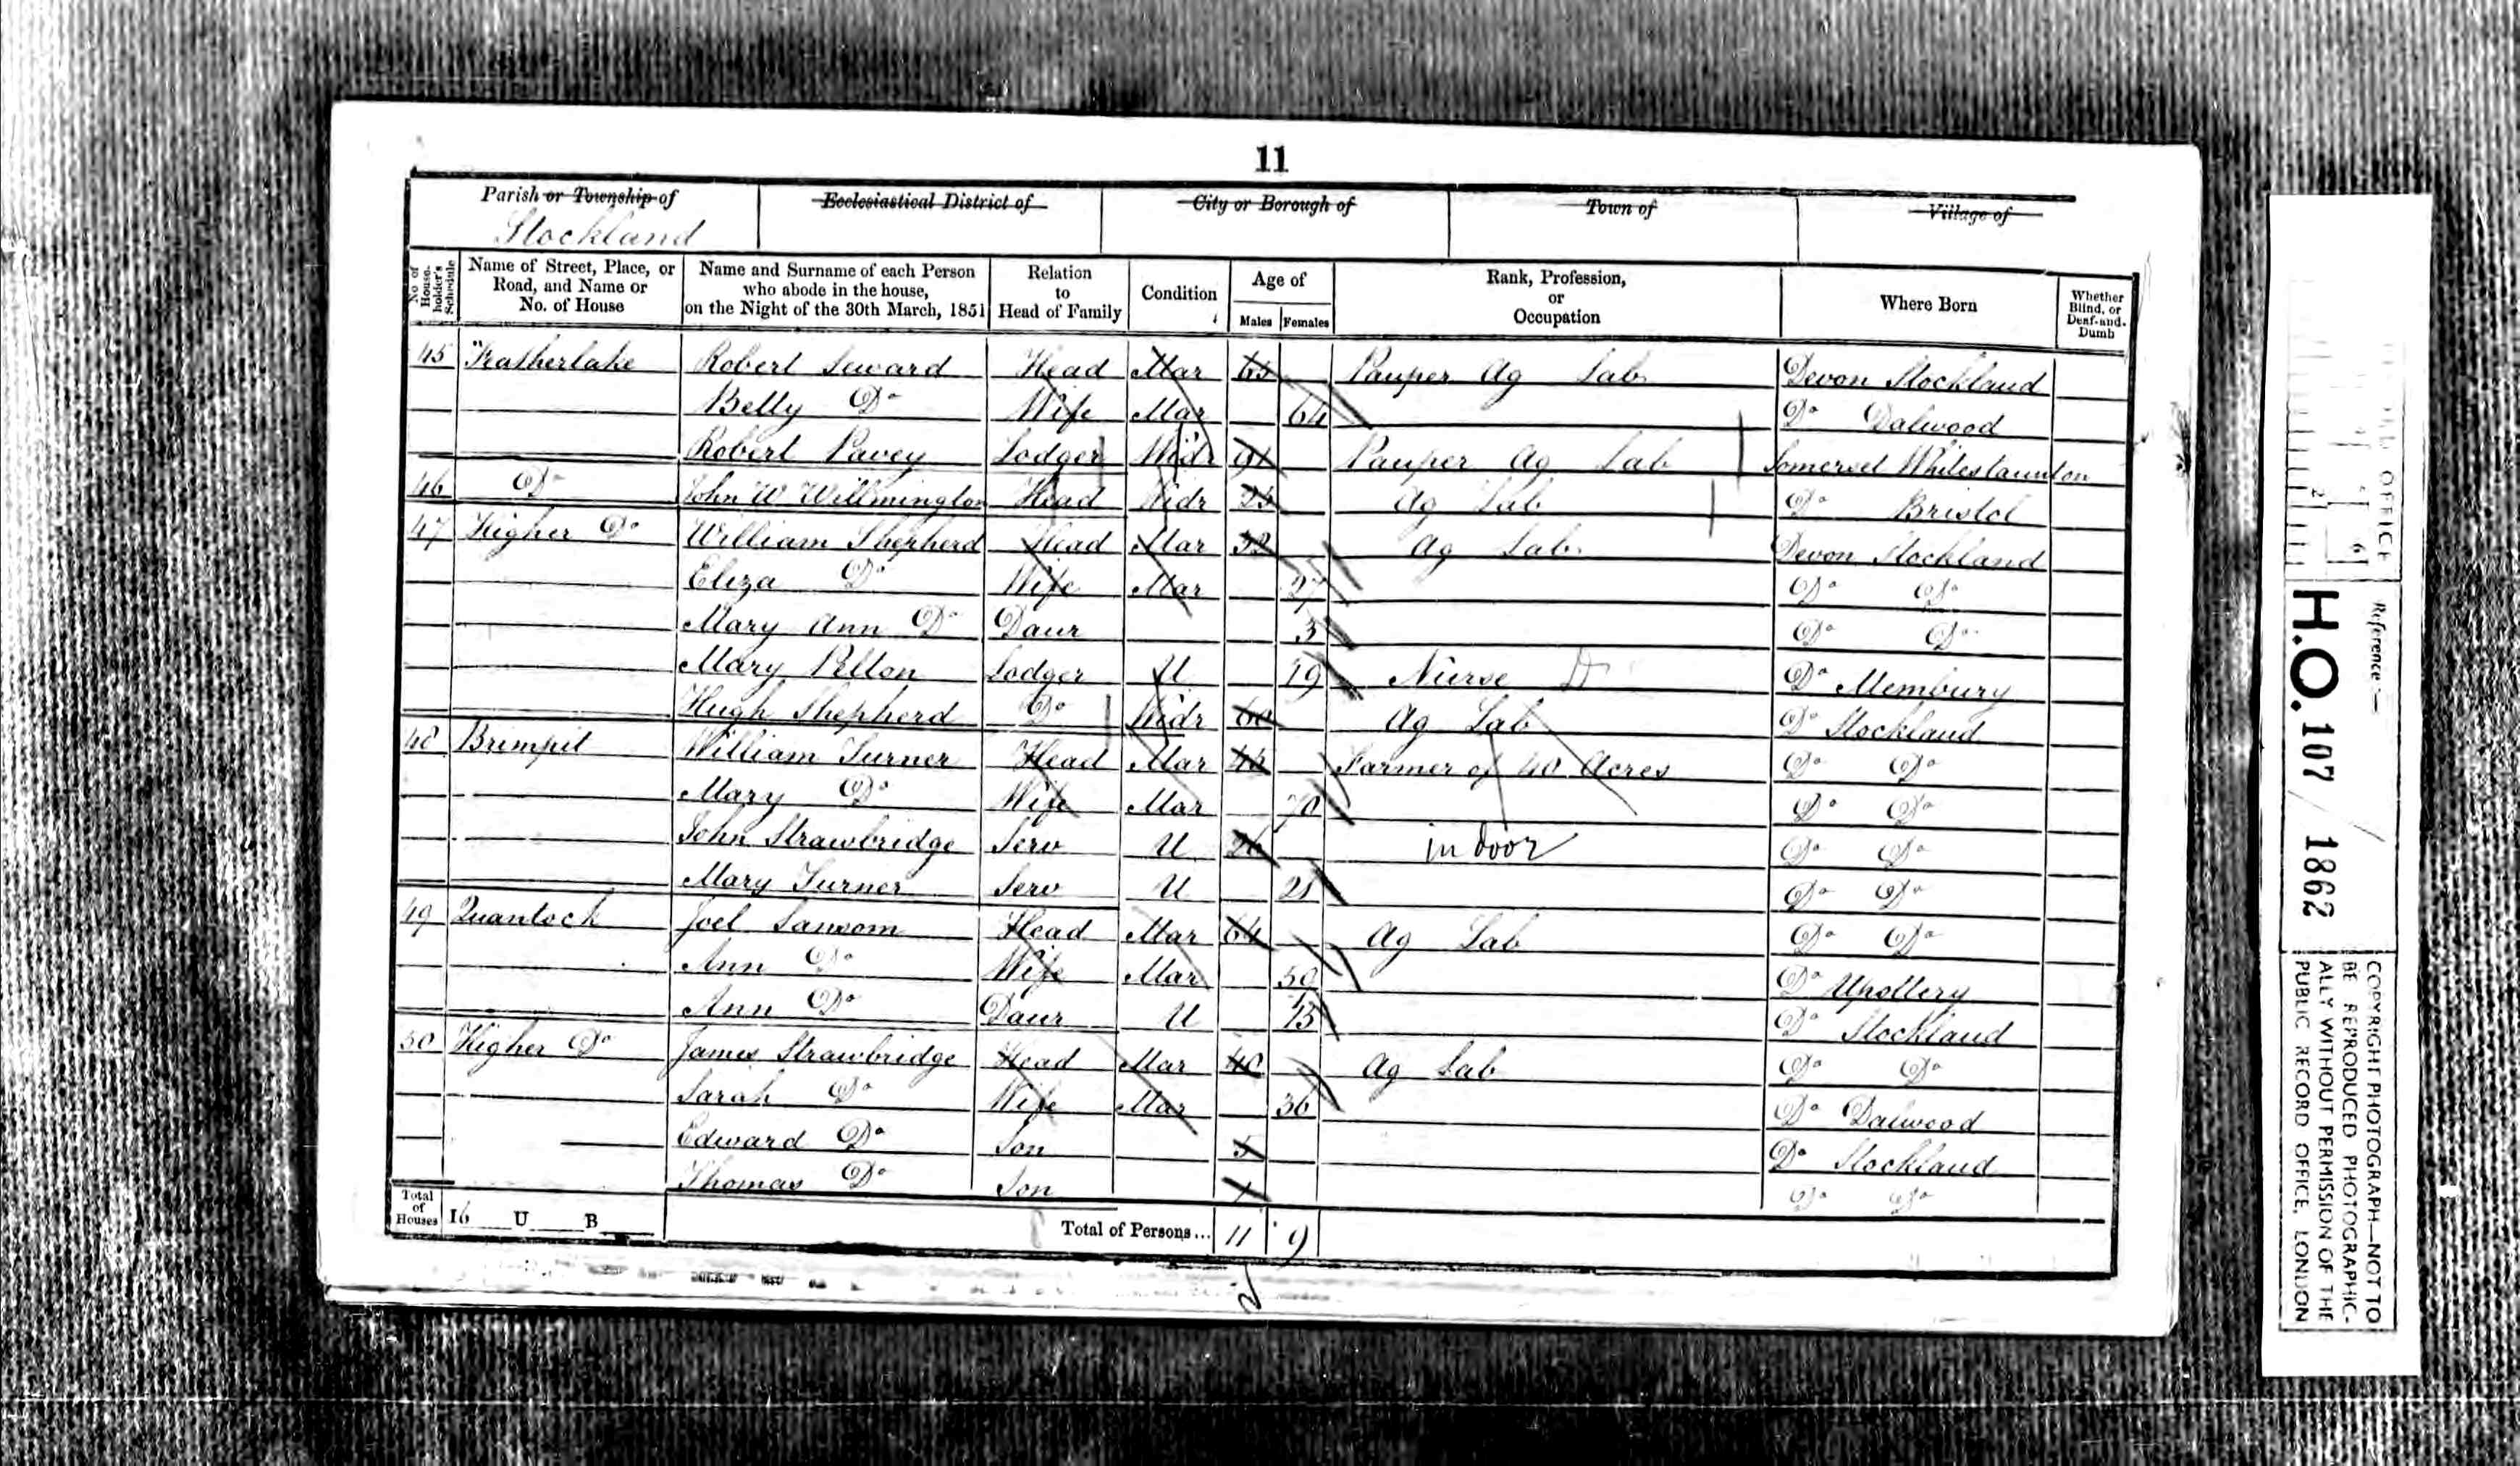 11
Parish or Township of Ecclesiastical District of City or Borough of Town of Village of
Stockland
No of House-holder's Schedule Name of Street, Place, or Road, and Name or No. of House Name and Surname of each Person who abode in the house, on the Night of the 30th March, 1851 Relation to Head of Family Condition Age of Males Females Rank, Profession, or Occupation Where Born Whether Blind, or Deaf-and-Dumb
45 Robert Seward Head Mar 65 Pauper Ag Lab Devon Stockland
Betty Do Wife Mar 64 Do Dalwood
Robert Pavey Lodger Widr Pauper Ag Lab Somerset Whitestaunton
46 Do John W Willmington Head Widr Ag Lab Do Bristol
47 Higher Do William Shepherd Head Mar 32 Ag Lab Devon Stockland
Eliza Do Wife Mar 27 Do Do
Mary Ann Do Daur 3 Do Do
Mary Lodger U 19 Nurse D Do Membury
Hugh Shepherd Do Widr 60 Ag Lab Do Stockland
48 Brimpit William Turner Head Mar Farmer of 40 Acres Do Do
Mary Do Wife Mar 70 Do Do
John Strawbridge Serv U in door Do Do
Mary Turner Serv U 21 Do Do
49 Quantock Joel Sansom Head Mar 64 Ag Lab Do Do
Ann Do Wife Mar 59 Do Upottery
Ann Do Daur U 15 Do Stockland
50 Higher Do James Strawbridge Head Mar 40 Ag Lab Do Do
Sarah Do Wife Mar 36 Do Dalwood
Edward Do Son 5 Do Stockland
Thomas Do Son 1 Do Do
Total of Houses I 6 U B Total of Persons... 11 9
OFFICE
Reference :—
H.O. 107 / 1862
COPYRIGHT PHOTOGRAPH—NOT TO
BE REPRODUCED PHOTOGRAPHIC-
ALLY WITHOUT PERMISSION OF THE
PUBLIC RECORD OFFICE, LONDON